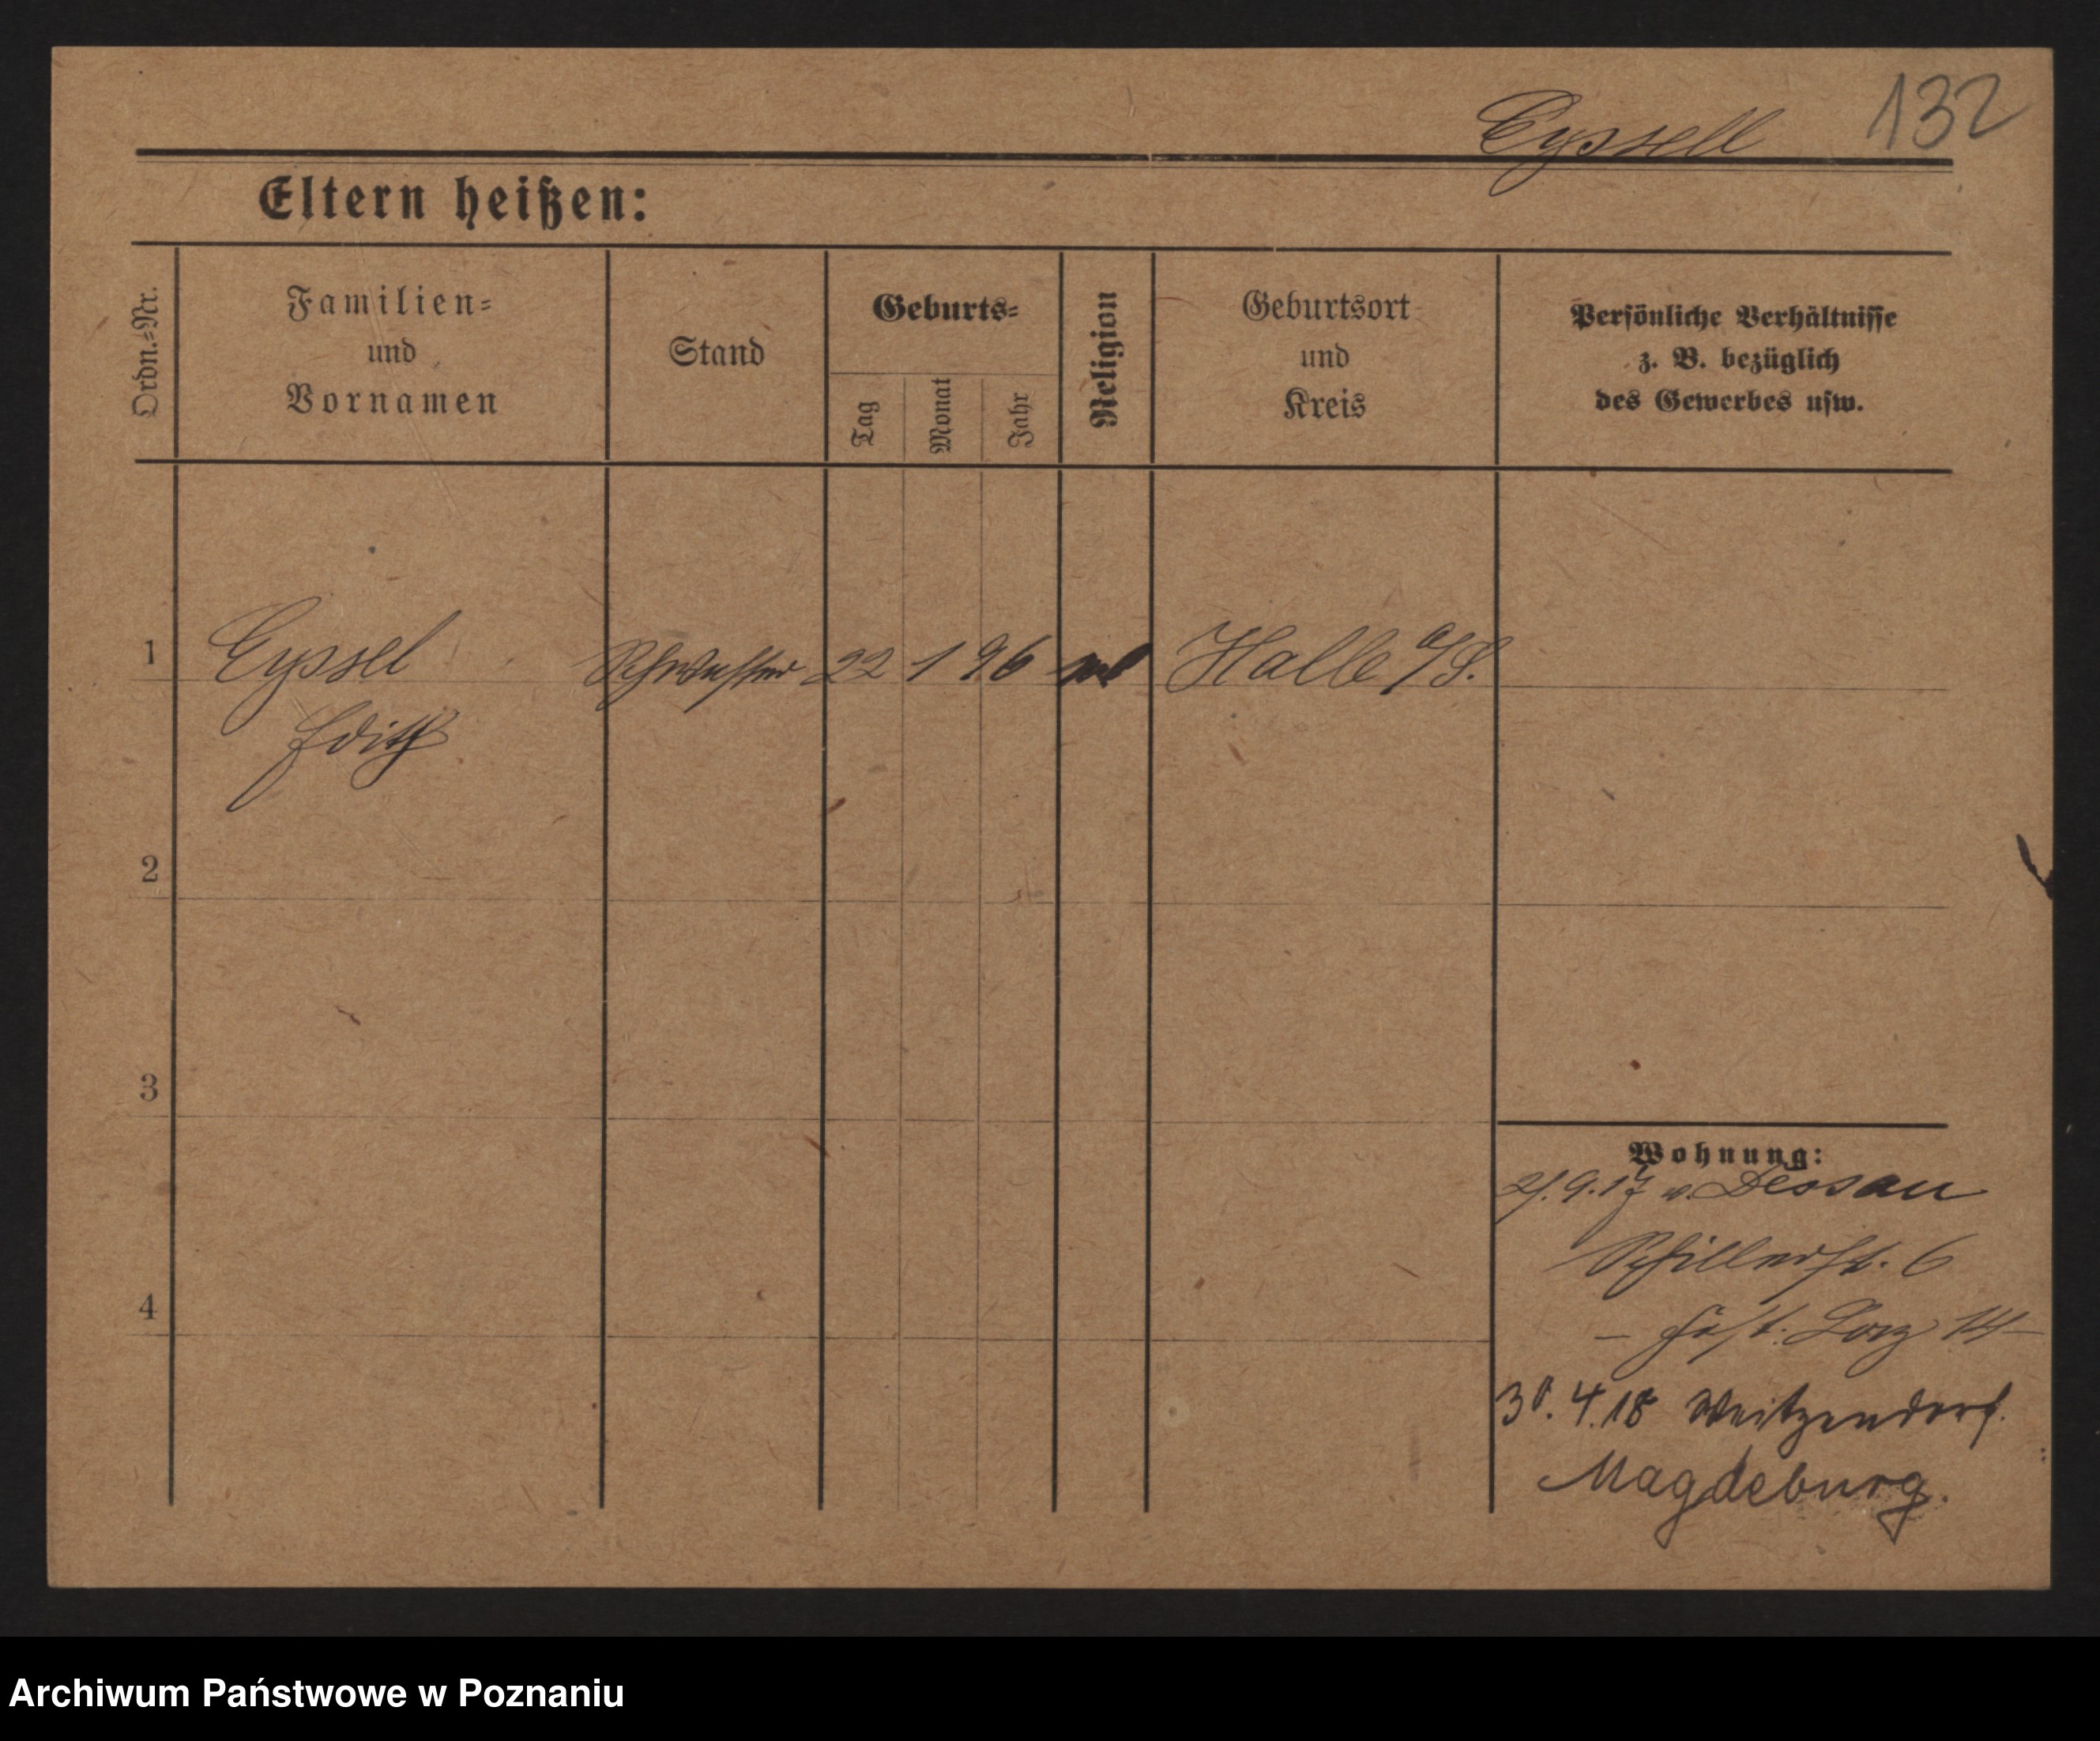 Eyssell 132
Eltern heißen:
Ordn.=Nr.
Familien=
und
Vornamen
Stand
Geburts=
Tag
Monat
Jahr
Religion
Geburtsort
und
Kreis
Persönliche Verhältnisse
z. B. bezüglich
des Gewerbes usw.
1 Eyssel Schwester 22 1 96 Halle a/S.
Edith
2
3
4
Wohnung:
21.9.17 v. Dessau
Schillerst. 6
30.4.18 Weitzendorf.
Magdeburg.
Archiwum Państwowe w Poznaniu